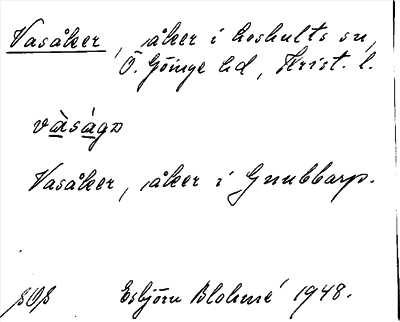 Vasåker, åker i Loshults sn,
Ö. Göinge hd, Krist. l.
vàságɔ
Vasåker, åker i Gnubbarp.
SOS Esbjörn Blohmé 1948.